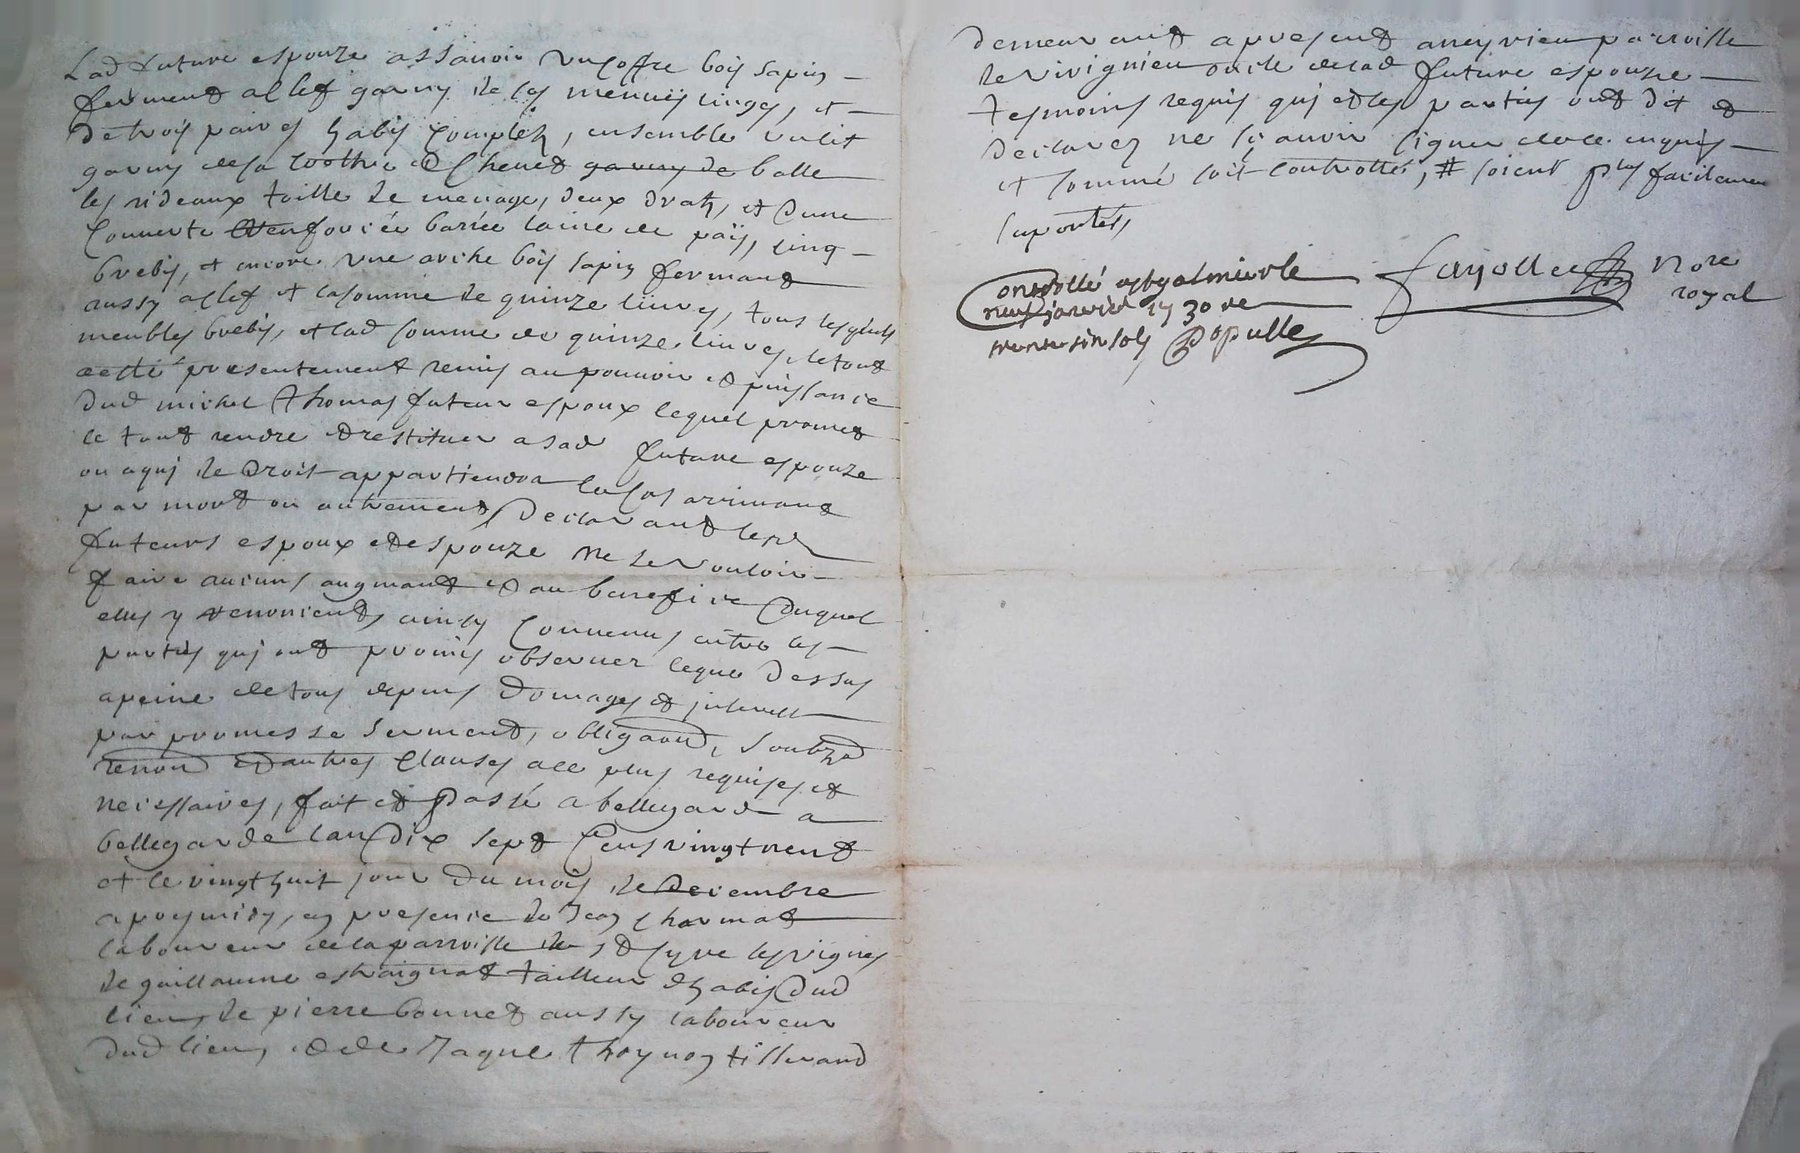 Lad future espouze assauoir un coffre bois sapin
fermend a clef garny de ses menuës linges, et
de trois paires habis complets, ensemble un lit
garny de sa coothre & cheuet garny de balle
les rideaux toille de menage, deux draps, et d'une
couuerte barrée laine de païs, cinq
brebis, et encore une arche bois sapin fermand
aussy a clef et la somme de quinze liures, tous lesquels
meubles brebis, et lad somme de quinze liures, le tout
a esté presentement remis au pouuoir et puissance
dud michel thomas futeur espoux lequel promet
le tout rendre et restituer a sad future espouze
ou a qui de droit appartiendra le cas arriuand
par mord ou autrement, declarand lesd
futeurs espoux et espouze ne se vouloir
faire aucuns augmand et au benefice duquel
elles y renoncend, ainsy conuenus entre les
parties qui ond promis obseruer ce que dessus
a peine de tous depens domages et interest
par promesse sermend, obligaond, soubzd
renond et autres clauses a ce plus requises et
necessaires, fait et passé a bellegard a
bellegarde l'an dix sept cens vingt neuf
et le vingt huit jour du mois de decembre
apres midy, en presence de Jean charmat
laboureur de la parroisse de st syre les vignes
de guillaume estraignat tailleur d'habis dud
lieu, de pierre bonnet aussy laboureur
dud lieu, et de Jaque thoynon tisserand
demeurant a present a meyrieu parroisse
de virignieu oncle de lad future espouze
tesmoins requis qui et les parties ont dit et
declarez ne sçauoir signer de ce enquis
et sommé soit controllé, # soient facilemen
suportés,
Controllé a st galmier le Fayolle Nore
neuf janvier 1730 re royal
trente six sols Populle